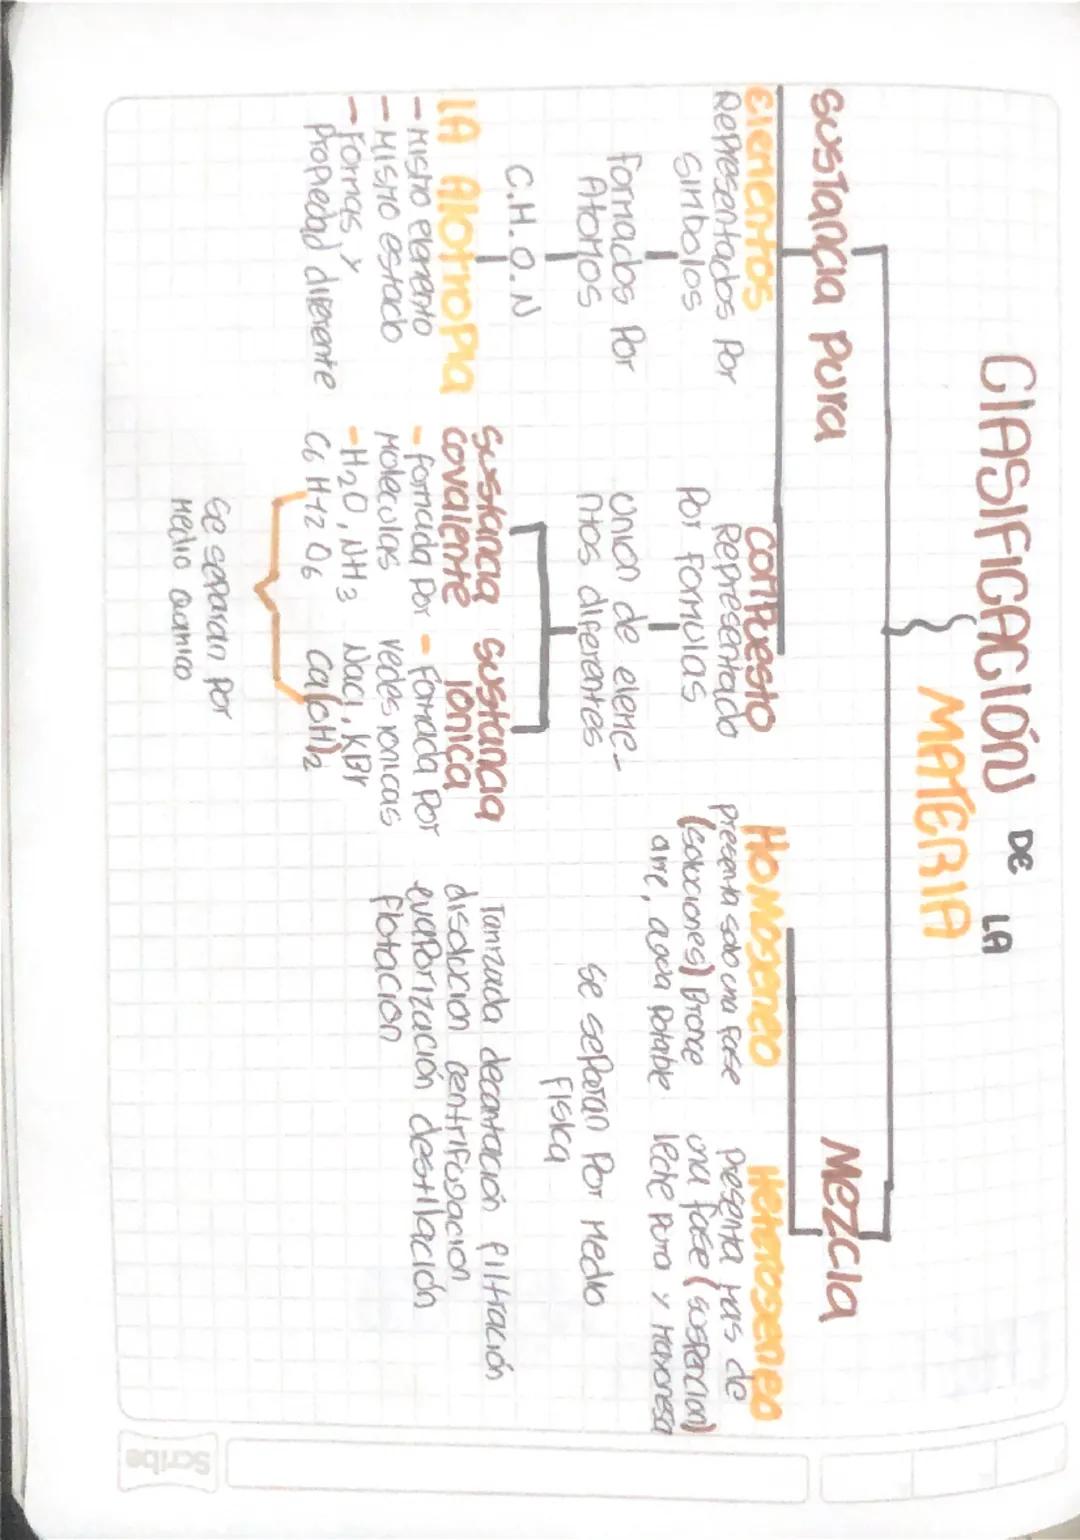 CLASIFICACIÓN DE LA
MATERIA
Sustancia pura
Mezcla
Elementos
Representados Por
Simbolos
formados Por
Atomos
C.H.O.N
LA Alotropia
- Mismo elemento
- Mismo estado
- Formas y
Propiedad diferente
Compuesto
Representado
Por Formulas
Union de eleme-
ntos diferentes
Sustancia
covalente
- formada Por
Moleculas
- H2O, NH3
C6 H12 O6
Sustancia
Iónica
- formada Por
redes ionicas
Nacl, KBr
Ca(OH)2
Se separan por
Medio
Homogeneo
presenta solo una fase
(soluciones) Bronce
aire, agua potable
Heterogeneo
presenta mas de
una fase (suspencion)
leche pura y mayonesa
Se separan Por Medio
Fisica
decantación filtración
disolucion centrifugacion
evaporización destilación
flotacion
Scribe